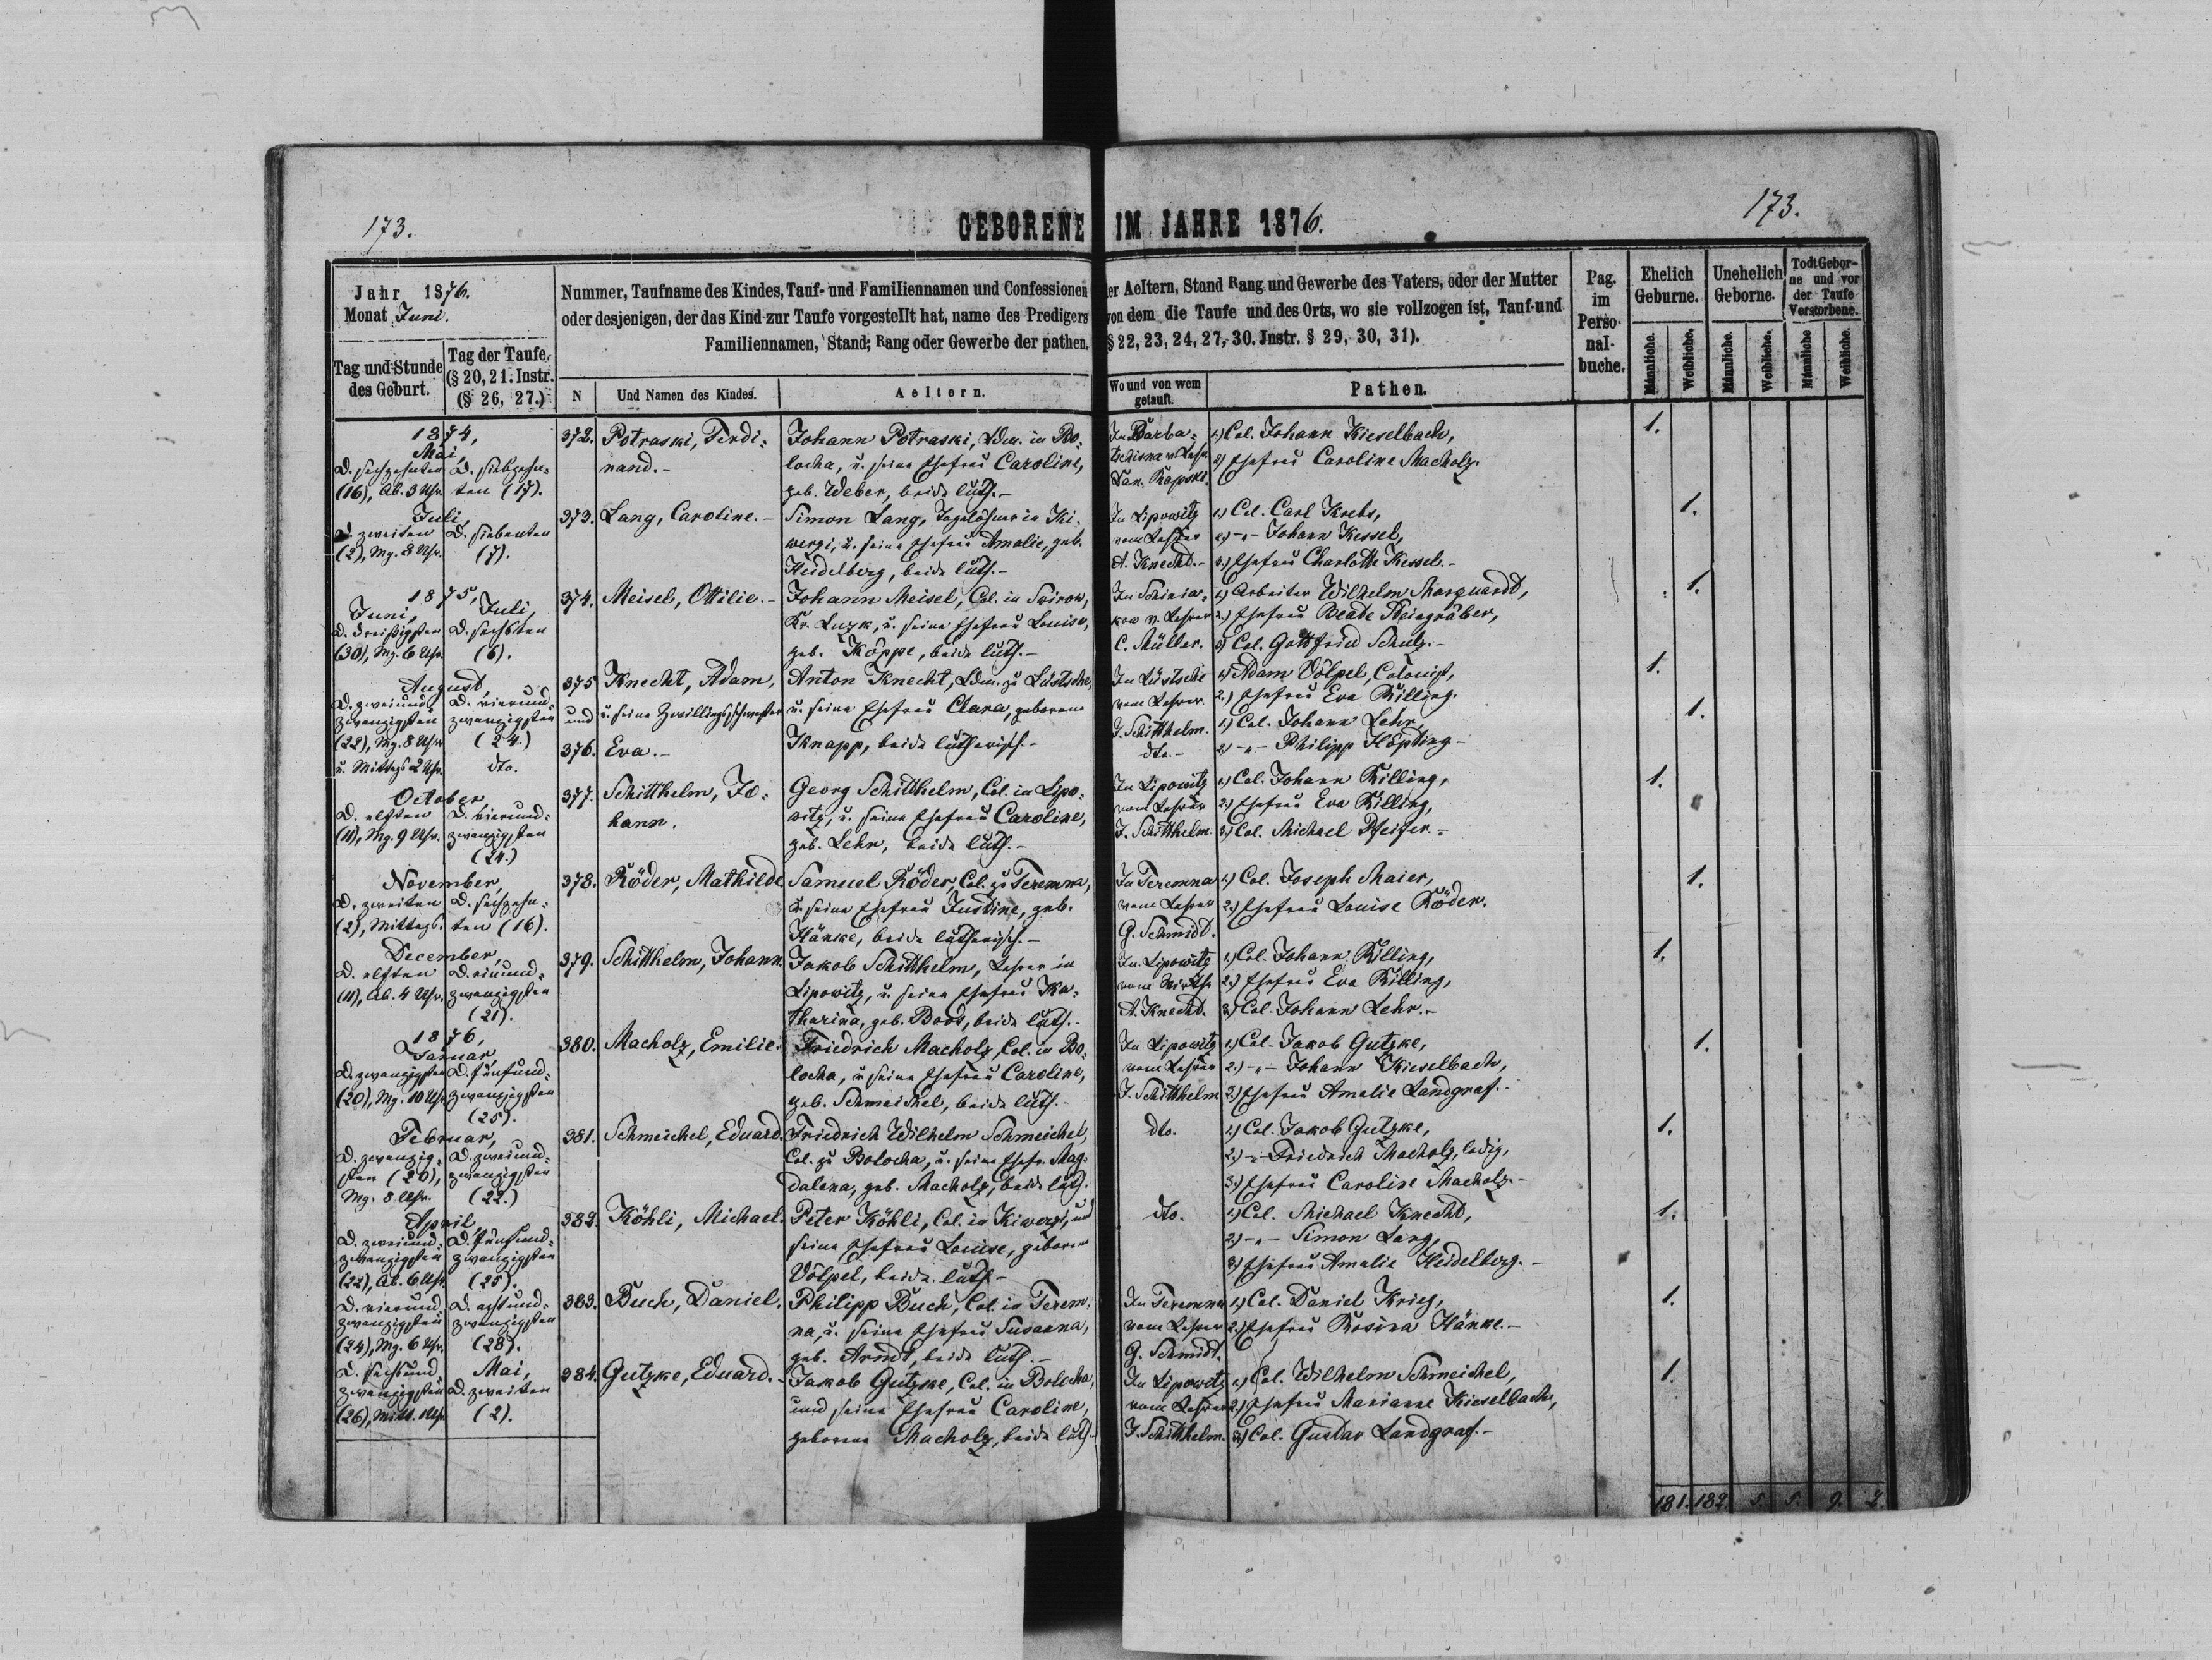 173.
GEBORENE IM JAHRE 1876.
173.
Jahr 1876.
Monat Juni.
Nummer, Taufname des Kindes, Tauf- und Familiennamen und Confessionen der Aeltern, Stand Rang und Gewerbe des Vaters, oder der Mutter
oder desjenigen, der das Kind zur Taufe vorgestellt hat, name des Predigers von dem die Taufe und des Orts, wo sie vollzogen ist, Tauf-und
Familiennamen, Stand; Rang oder Gewerbe der pathen. § 22, 23, 24, 27, 30. Jnstr. § 29, 30, 31).
Tag und Stunde
des Geburt.
Tag der Taufe.
(§ 20, 21. Instr.
(§ 26, 27.)
N
Und Namen des Kindes.
Aeltern.
Wo und von wem
getauft.
Pathen.
Pag.
im
Perso-
nal-
buche.
Ehelich
Geburne.
Unehelich
Geborne.
Todt Gebor-
ne und vor
der Taufe
Verstorbene.
Männliche.
Weibliche.
Männliche.
Weibliche.
Männliche
Weibliche.
1874,
Mai
D. sechzehnten
(16), Ab. 3 Uhr.
D. siebzehn-
ten (17).
372.
Potraski, Ferdi-
nand.-
Johann Potraski, Ldm. in Bo-
locha, u. seine Ehefrau Caroline,
geb. Weber, beide luth.-
In Barba-
tschisna v. Lehr.
1) Col. Johann Kieselbach,
2) Ehefrau Caroline Macholz.
1.
Juli,
D. zweiten
(2), Mg. 8 Uhr.
D. siebenten
(7).
373.
Lang, Caroline.-
Simon Lang, Tagelöhner in Ki-
werzi, u. seine Ehefrau Amalie, geb.
Heidelberg, beide luth.-
In Lipowitz
vom Lehrer
A. Knecht.-
1) Col. Carl Krebs,
2) -"- Johann Kessel,
3) Ehefrau Charlotte Kessel.-
1.
1875,
Juni,
D. dreißigsten
(30), Mg. 6 Uhr.
Juli,
D. sechsten
(6).
374.
Meisel, Ottilie.-
Johann Meisel, Col. in Swirow,
Kr. Luzk, u. seine Ehefrau Louise,
geb. Köppe, beide luth.-
kow v. Lehrer
C. Müller.
1) Arbeiter Wilhelm Marquardt,
2) Ehefrau Beate Steingräber,
3) Col. Gottfried Schulz.-
1.
August,
D. zweiund-
zwanzigsten
(22), Mg. 8 Uhr
u. Mittags 2 Uhr.
D. vierund-
zwanzigsten
(24.)
dto.
375
und
376.
Knecht, Adam,
u. seine Zwillingsschwester
Eva.-
Anton Knecht, Ldm. zu Lustsche,
u. seine Ehefrau Clara, geborene
Knapp, beide lutherisch.-
In Lustsche
vom Lehrer
J. Schitthelm.
dto.-
1) Adam Völpel, Colonist,
2) Ehefrau Eva Killing.
1) Col. Johann Lehr,
2) -"- Philipp Höpting.-
1.
1.
October,
D. elften
(11), Mg. 9 Uhr.
D. vierund-
zwanzigsten
(24.)
377.
Schitthelm, Jo-
hann.
Georg Schitthelm, Col. in Lipo-
witz, u. seine Ehefrau Caroline,
geb. Lehr, beide luth.-
In Lipowitz
vom Lehrer
J. Schitthelm.
1) Col. Johann Killing,
2) Ehefrau Eva Killing,
3) Col. Michael Pfeifer.-
1.
November,
D. zweiten
(2), Mittags.
D. sechzehn-
ten (16).
378.
Röder, Mathilde
Samuel Röder, Col. zu Teremna,
u. seine Ehefrau Justine, geb.
Hänke, beide lutherisch.-
In Teremna
vom Lehrer
G. Schmidt.
1) Col. Joseph Maier,
2) Ehefrau Louise Röder.
1.
December,
D. elften
(11), Ab. 4 Uhr.
D. einund-
zwanzigsten
(21).
379.
Schitthelm, Johann.
Jakob Schitthelm, Lehrer in
Lipowitz, u. seine Ehefrau Ka-
tharina, geb. Boos, beide luth.-
In Lipowitz
vom Wirth
A. Knecht.
1) Col. Johann Killing,
2) Ehefrau Eva Killing,
3) Col. Johann Lehr.-
1.
1876,
Januar,
D. zwanzigsten
(20), Mg. 10 Uhr.
D. fünfund-
zwanzigsten
(25).
380.
Macholz, Emilie.
Friedrich Macholz, Col. in Bo-
locha, u. seine Ehefrau Caroline,
geb. Schmeichel, beide luth.-
In Lipowitz
vom Lehrer
J. Schitthelm
1) Col. Jakob Gutzke,
2) -"- Johann Kieselbach,
3) Ehefrau Amalie Landgraf.-
1.
Februar,
D. zwanzig-
sten (20),
Mg. 8 Uhr.
D. zweiund-
zwanzigsten
(22.)
381.
Schmeichel, Eduard.
Friedrich Wilhelm Schmeichel,
Col. zu Bolocha, u. seine Ehefr. Mag-
dalena, geb. Macholz, beide luth.
dto.
1) Col. Jakob Gutzke,
2) -"- Friedrich Macholz, ledig,
3) Ehefrau Caroline Macholz.-
1.
April,
D. zweiund-
zwanzigsten
(22), Ab. 6 Uhr.
D. fünfund-
zwanzigsten
(25).
382.
Köhli, Michael.
Peter Köhli, Col. in Kiwerzi, und
seine Ehefrau Louise, geborene
Völpel, beide luth.-
dto.
1) Col. Michael Knecht,
2) -"- Simon Lang,
3) Ehefrau Amalie Heidelberg.-
1.
D. vierund-
zwanzigsten
(24), Mg. 6 Uhr.
D. achtund-
zwanzigsten
(28).
383.
Buch, Daniel.
Philipp Buch, Col. in Terem-
na, u. seine Ehefrau Susanna,
geb. Arndt, beide luth.-
In Teremna
vom Lehrer
G. Schmidt.
1) Col. Daniel Krieg,
2) Ehefrau Rosina Hänke.-
1.
D. sechsund-
zwanzigsten
(26), Mitt. 1 Uhr.
Mai,
D. zweiten
(2).
384.
Gutzke, Eduard.-
Jakob Gutzke, Col. in Bolocha,
und seine Ehefrau Caroline,
geborene Macholz, beide luth.-
In Lipowitz
vom Lehrer
J. Schitthelm.
1) Col. Wilhelm Schmeichel,
2) Ehefrau Marianne Kieselbach,
3) Col. Gustav Landgraf.-
1.
181. 182. 5. 5. 9. 2.